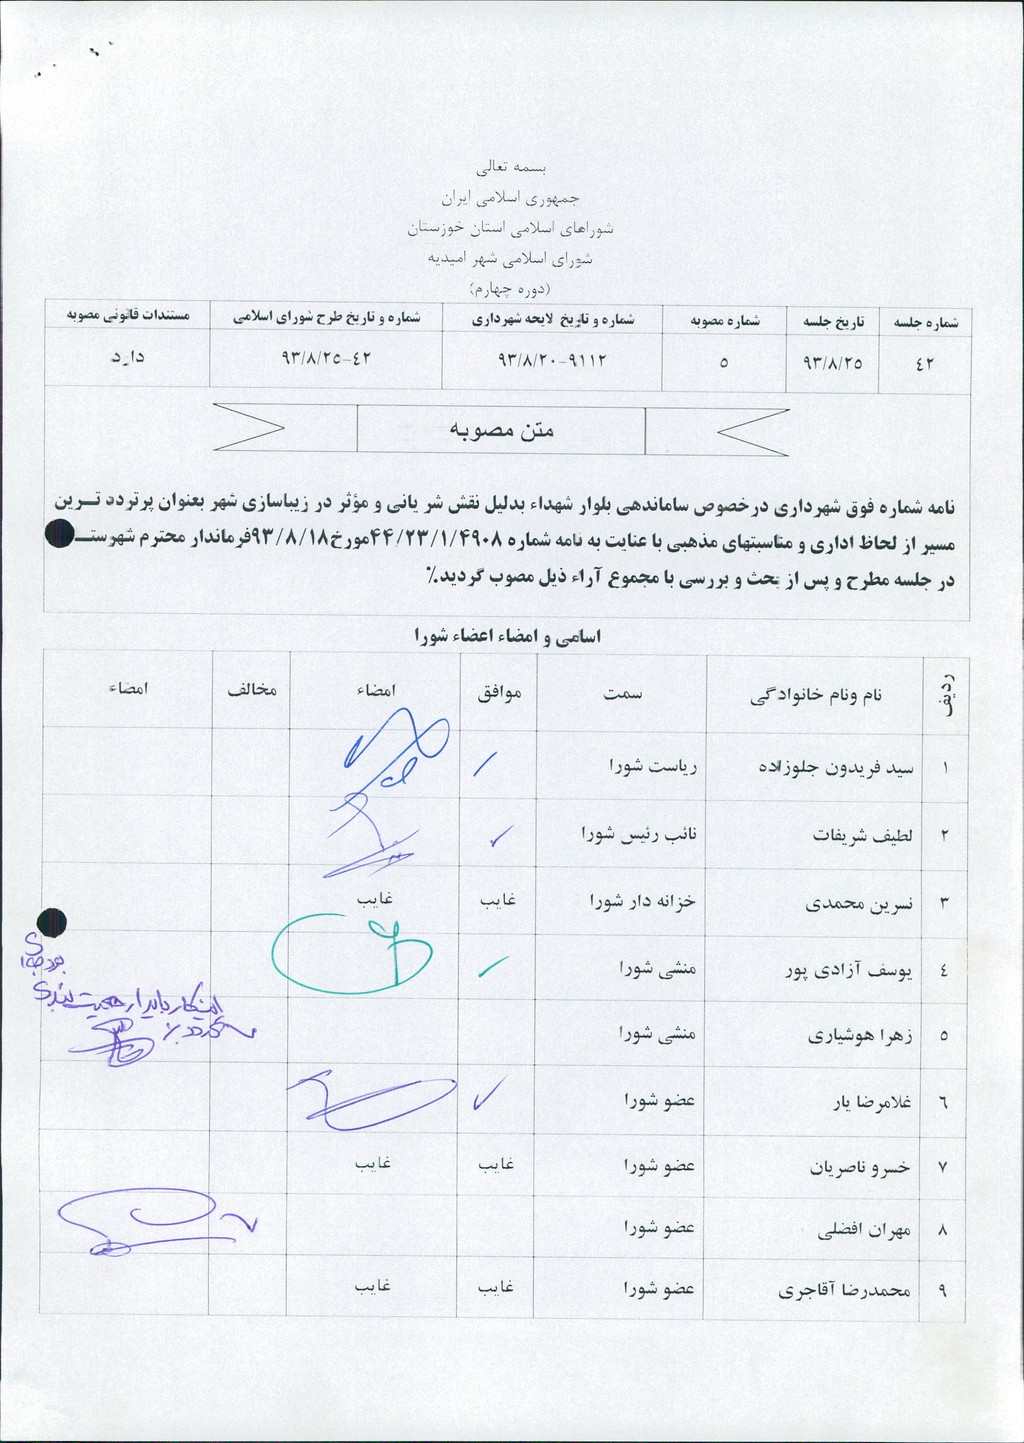 بسمه تعالی
جمهوری اسلامی ایران
شوراهای اسلامی استان خوزستان
شورای اسلامی شهر امیدیه
(دوره چهارم)
شماره جلسه تاریخ جلسه شماره مصوبه شماره و تاریخ لایحه شهرداری شماره و تاریخ طرح شورای اسلامی مستندات قانونی مصوبه
٤٢ ٩٣/٨/٢٥ ٥ ٩١١٢-٩٣/٨/٢٠ ٤٢-٩٣/٨/٢٥ دارد
متن مصوبه
نامه شماره فوق شهرداری درخصوص ساماندهی بلوار شهداء بدلیل نقش شریانی و مؤثر در زیباسازی شهر بعنوان پرتردد تـرین
مسیر از لحاظ اداری و مناسبتهای مذهبی با عنایت به نامه شماره ۴۴/۲۳/۱/۴۹۰۸مورخ۹۳/۸/۱۸فرماندار محترم شهرستـ
در جلسه مطرح و پس از بحث و بررسی با مجموع آراء ذیل مصوب گردید.٪
اسامی و امضاء اعضاء شورا
ردیف نام ونام خانوادگی سمت موافق امضاء مخالف امضاء
١ سید فریدون جلوزاده ریاست شورا ✓
٢ لطیف شریفات نائب رئیس شورا ✓
٣ نسرین محمدی خزانه دار شورا غایب غایب
٤ یوسف آزادی پور منشی شورا ✓
٥ زهرا هوشیاری منشی شورا
٦ غلامرضا یار عضو شورا ✓
٧ خسرو ناصریان عضو شورا غایب غایب
٨ مهران افضلی عضو شورا ✓
٩ محمدرضا آقاجری عضو شورا غایب غایب